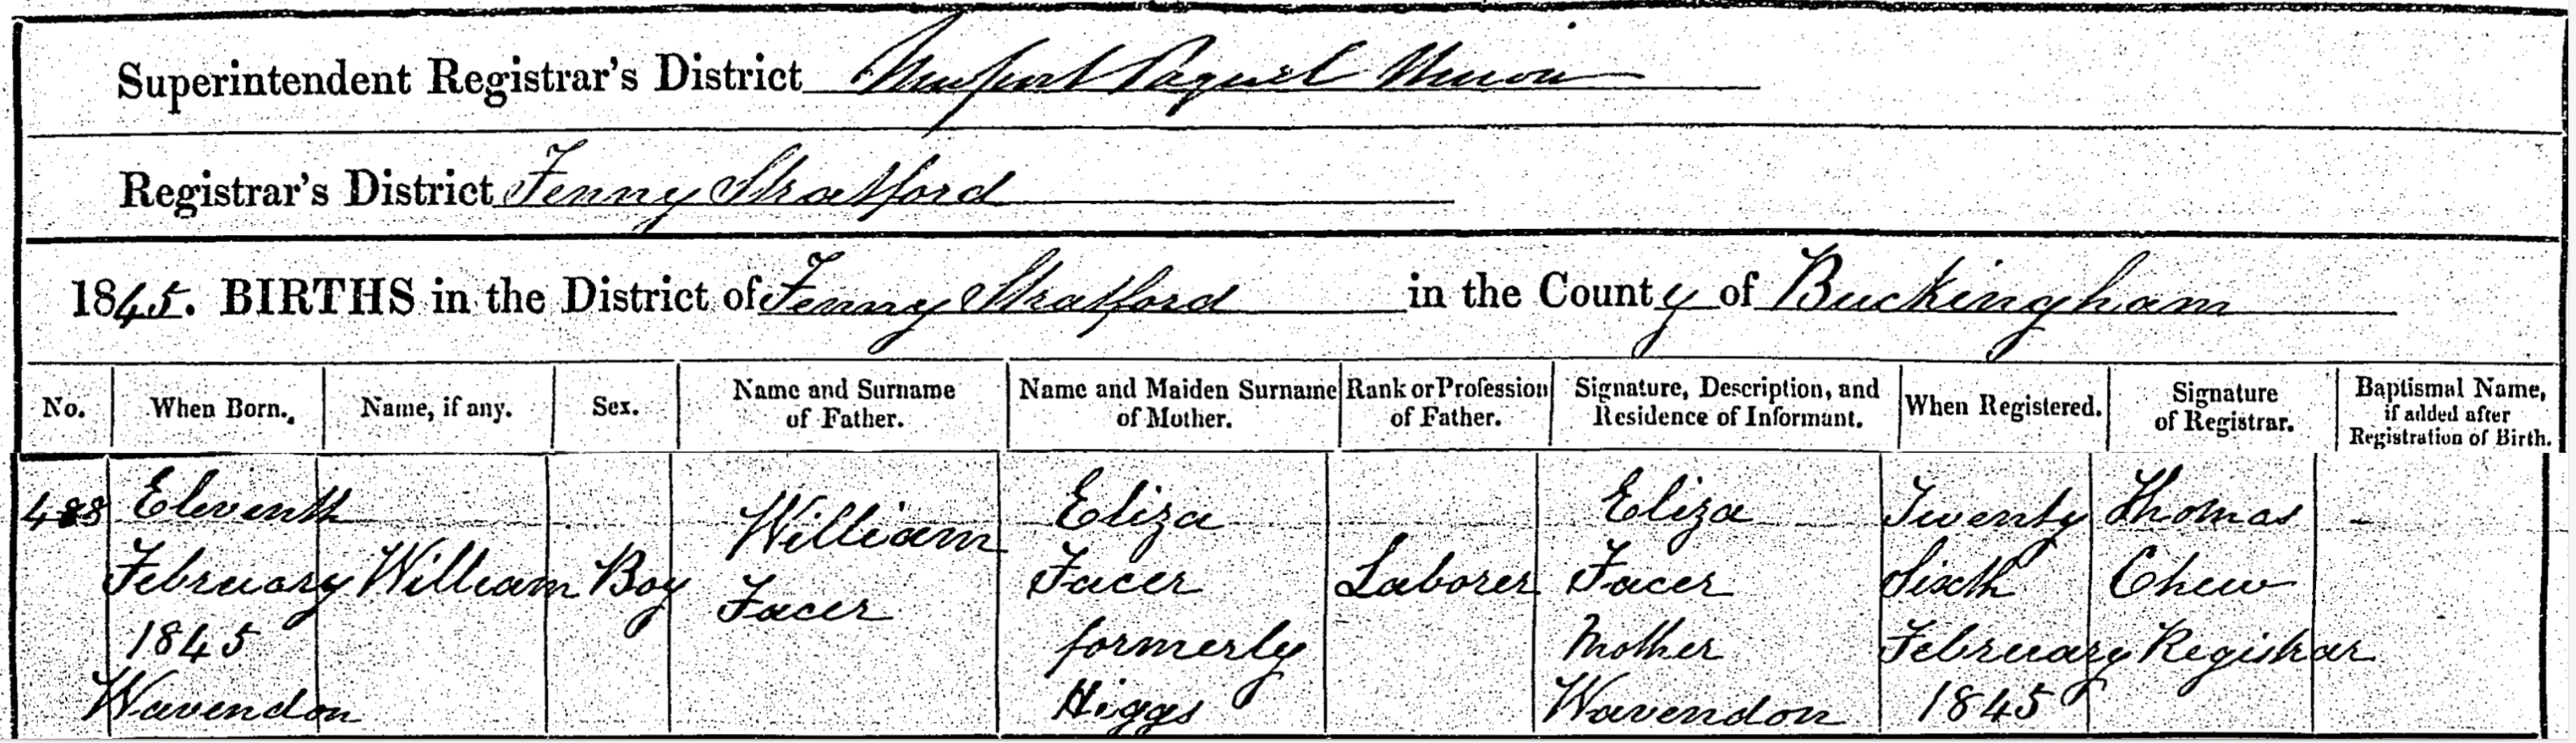 Superintendent Registrar's District Newport Pagnel Union
Registrar's District Fenny Stratford
1845. BIRTHS in the District of Fenny Stratford in the County of Buckingham
No. When Born. Name, if any. Sex. Name and Surname of Father. Name and Maiden Surname of Mother. Rank or Profession of Father. Signature, Description, and Residence of Informant. When Registered. Signature of Registrar. Baptismal Name, if added after Registration of Birth.
488 Eleventh February 1845 Wavendon
William
Boy
William Facer
Eliza Facer formerly Higgs
Laborer
Eliza Facer Mother Wavendon
Twenty Sixth February 1845
Thomas Chew Registrar
-